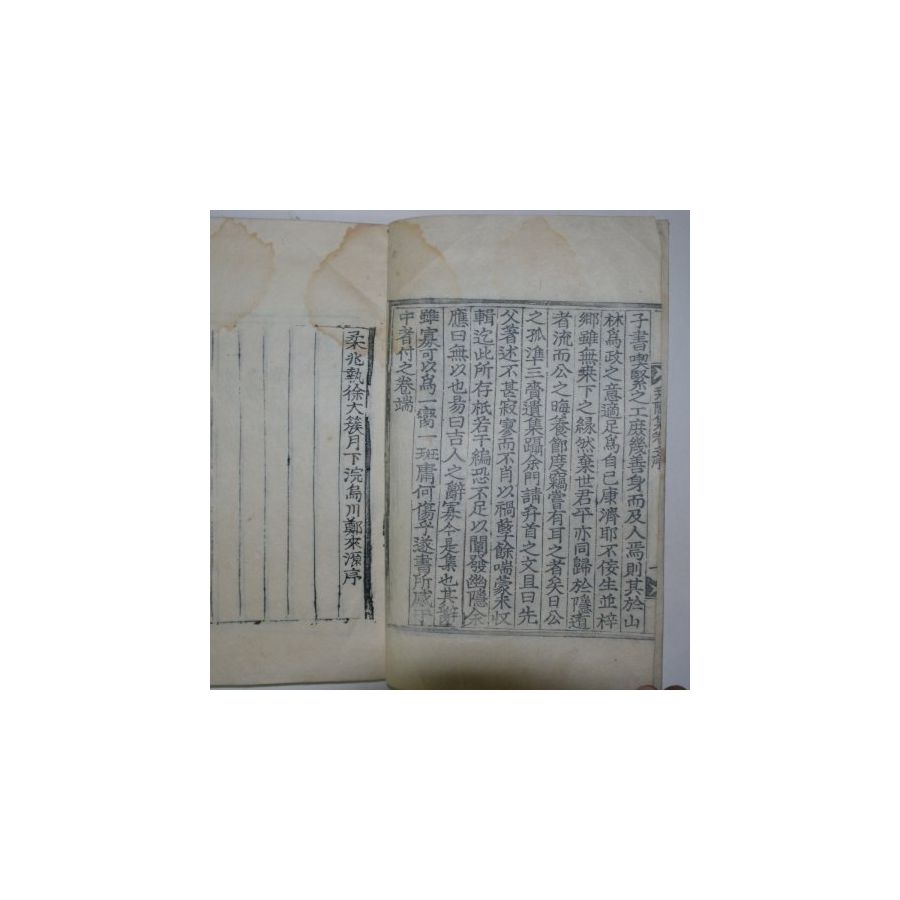 子書喫緊之工庶幾善身而及人焉則其於山
林爲政之意適足爲自己康濟耶不侫生並梓
鄉雖無桒下之緣然棄世君平亦同歸於隱遁
者流而公之晦養節度竊嘗有耳之者矣日公
之孤準三賫遺集躡余門請弁首之文且曰先
父著述不甚寂寥而不肖以禍孼餘喘蒙未収
輯迄此所存秪若干編恐不足以闡發幽隱余
應曰無以也易曰吉人之辭寡今是集也其辭
雖寡可以爲一臠一班庸何傷乎遂書所感于
中者付之卷端
柔兆執徐大簇月下浣烏川鄭來源序